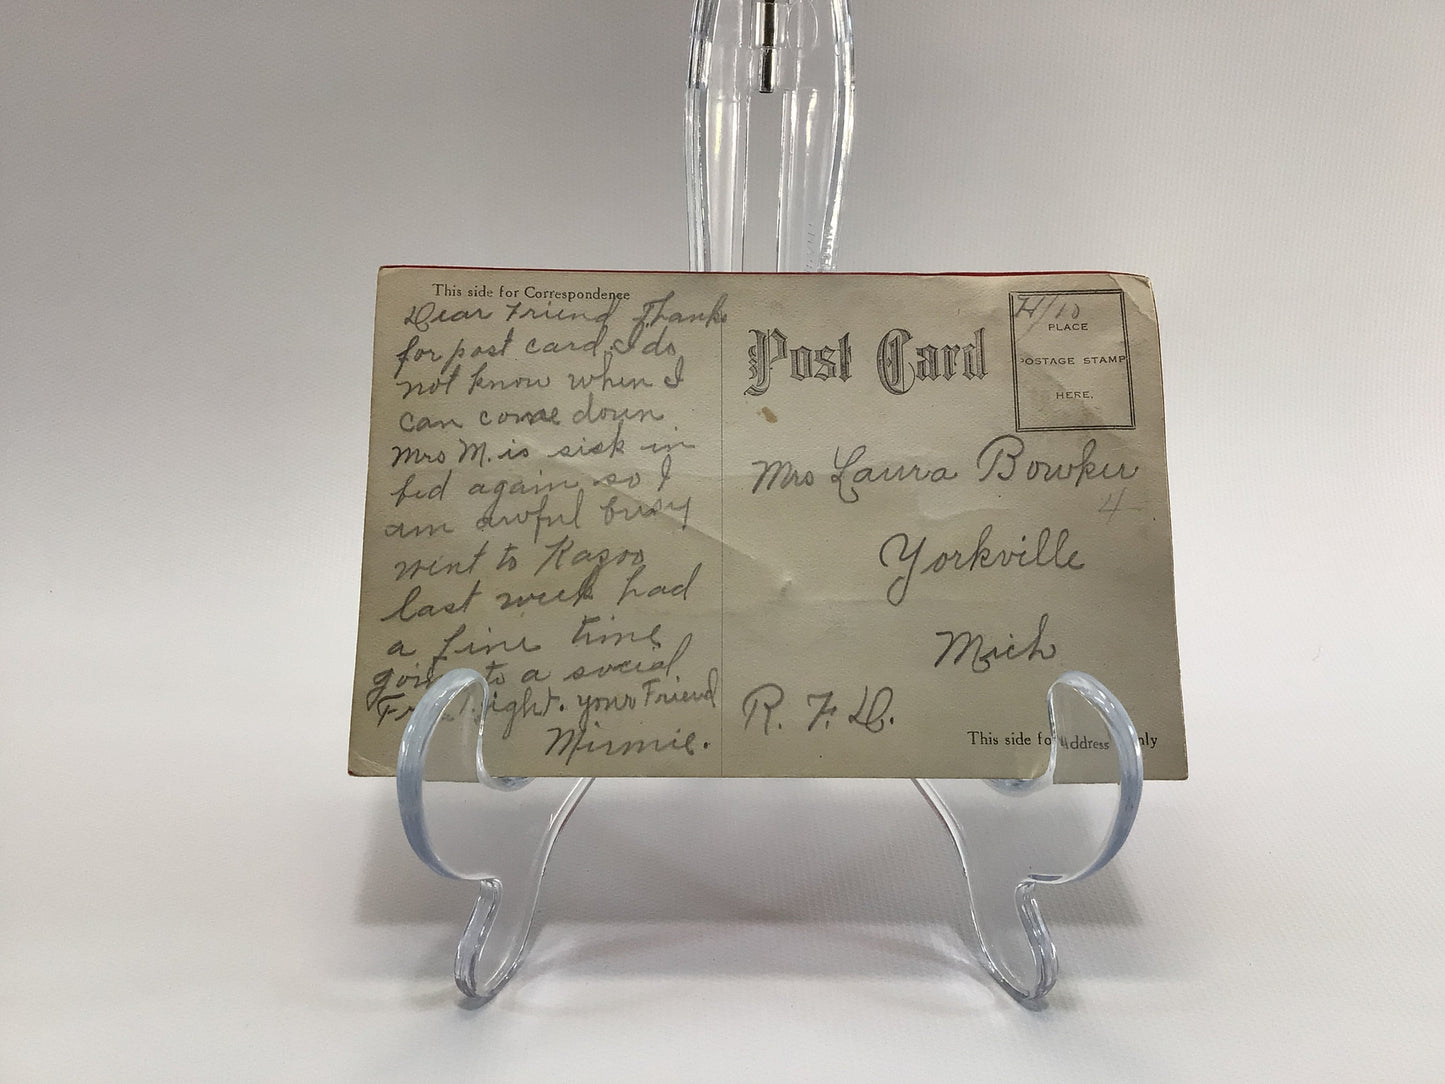 This side for Correspondence
Dear Friend Thanks
for post card. I do
not know when I
can come down
Mrs M. is sick in
bed again so I
am awful busy
went to Kazoo
last week had
a fine time
goin to a social
night. your Friend
Minnie.
Post Card
4/10
PLACE
POSTAGE STAMP
HERE.
Mrs Laura Bowker
4
Yorkville
Mich
R. F. D.
This side for Address only